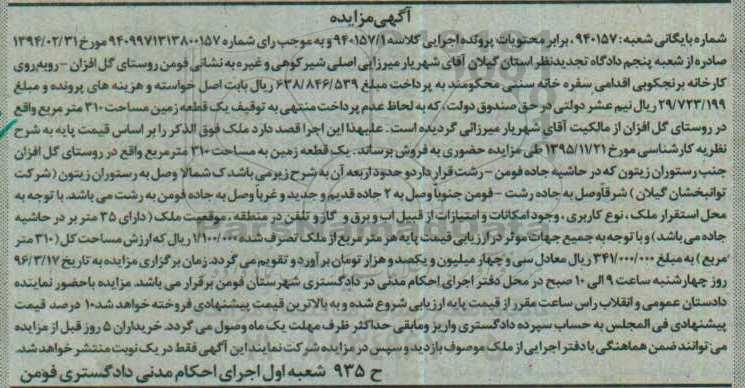 آگهی مزایده
شماره بایگانی شعبه: ۹۴۰۱۵۷، برابر محتویات پرونده اجرایی کلاسه ۹۴۰۱۵۷/۱ و به موجب رای شماره ۹۴۰۹۹۷۱۳۱۳۸۰۰۱۵۷ مورخ ۱۳۹۴/۰۲/۳۱
صادره از شعبه پنجم دادگاه تجدیدنظر استان گیلان آقای شهریار میرزایی اصلی شیر کوهی و غیره به نشانی فومن روستای گل افزان - روبه‌روی
کارخانه برنجکوبی اقدامی سفره خانه سنتی محکومند به پرداخت مبلغ ۶۳۸/۸۴۶/۵۳۹ ریال بابت اصل خواسته و هزینه های پرونده و مبلغ
۲۹/۷۲۳/۱۹۹ ریال نیم عشر دولتی در حق صندوق دولت، که به لحاظ عدم پرداخت منتهی به توقیف یک قطعه زمین مساحت ۳۱۰ متر مربع واقع
در روستای گل افزان از مالکیت آقای شهریار میرزائی گردیده است. علیهذا این اجرا قصد دارد ملک فوق الذکر را بر اساس قیمت پایه به شرح
نظریه کارشناسی مورخ ۱۳۹۵/۱۱/۲۱ طی مزایده حضوری به فروش برساند. یک قطعه زمین به مساحت ۳۱۰ متر مربع واقع در روستای گل افزان
جنب رستوران زیتون که در حاشیه جاده فومن - رشت قرار دارد و حدود اربعه آن به شرح زیر می باشد ک شمالا وصل به رستوران زیتون (شرکت
توانبخشان گیلان) شرقا وصل به جاده رشت - فومن جنوبا وصل به ۲ جاده قدیم و جدید و غربا وصل به جاده فومن به رشت می باشد. با توجه به
محل استقرار ملک، نوع کاربری، وجود امکانات و امتیازات از قبیل اب و برق و گاز و تلفن در منطقه، موقعیت ملک (دارای ۳۵ متر بر در حاشیه
جاده می باشد) و با توجه به جمیع جهات موثر در ارزیابی قیمت پایه هر متر مربع از ملک تصرف شده ۱/۱۰۰/۰۰۰ ریال که ارزش مساحت کل (۳۱۰ متر
مربع) به مبلغ ۳۴۱/۰۰۰/۰۰۰ ریال معادل سی و چهار میلیون و یکصد هزار تومان برآورد و تقویم می گردد. زمان برگزاری مزایده به تاریخ ۹۶/۳/۱۷
روز چهارشنبه ساعت ۹ الی ۱۰ صبح در محل دفتر اجرای احکام مدنی در دادگستری شهرستان فومن برقرار می باشد. مزایده با حضور نماینده
دادستان عمومی و انقلاب راس ساعت مقرر از قیمت پایه ارزیابی شروع شده و به بالاترین قیمت پیشنهادی فروخته خواهد شد ۱۰ درصد قیمت
پیشنهادی فی المجلس به حساب سپرده دادگستری واریز و مابقی حداکثر ظرف مهلت یک ماه وصول می گردد. خریداران ۵ روز قبل از مزایده
می توانند ضمن هماهنگی با دفتر اجرایی از ملک موصوف بازدید و سپس در مزایده شرکت نمایند این آگهی فقط در یک نوبت منتشر خواهد شد.
ح ۹۳۵ شعبه اول اجرای احکام مدنی دادگستری فومن
ParsNamadData